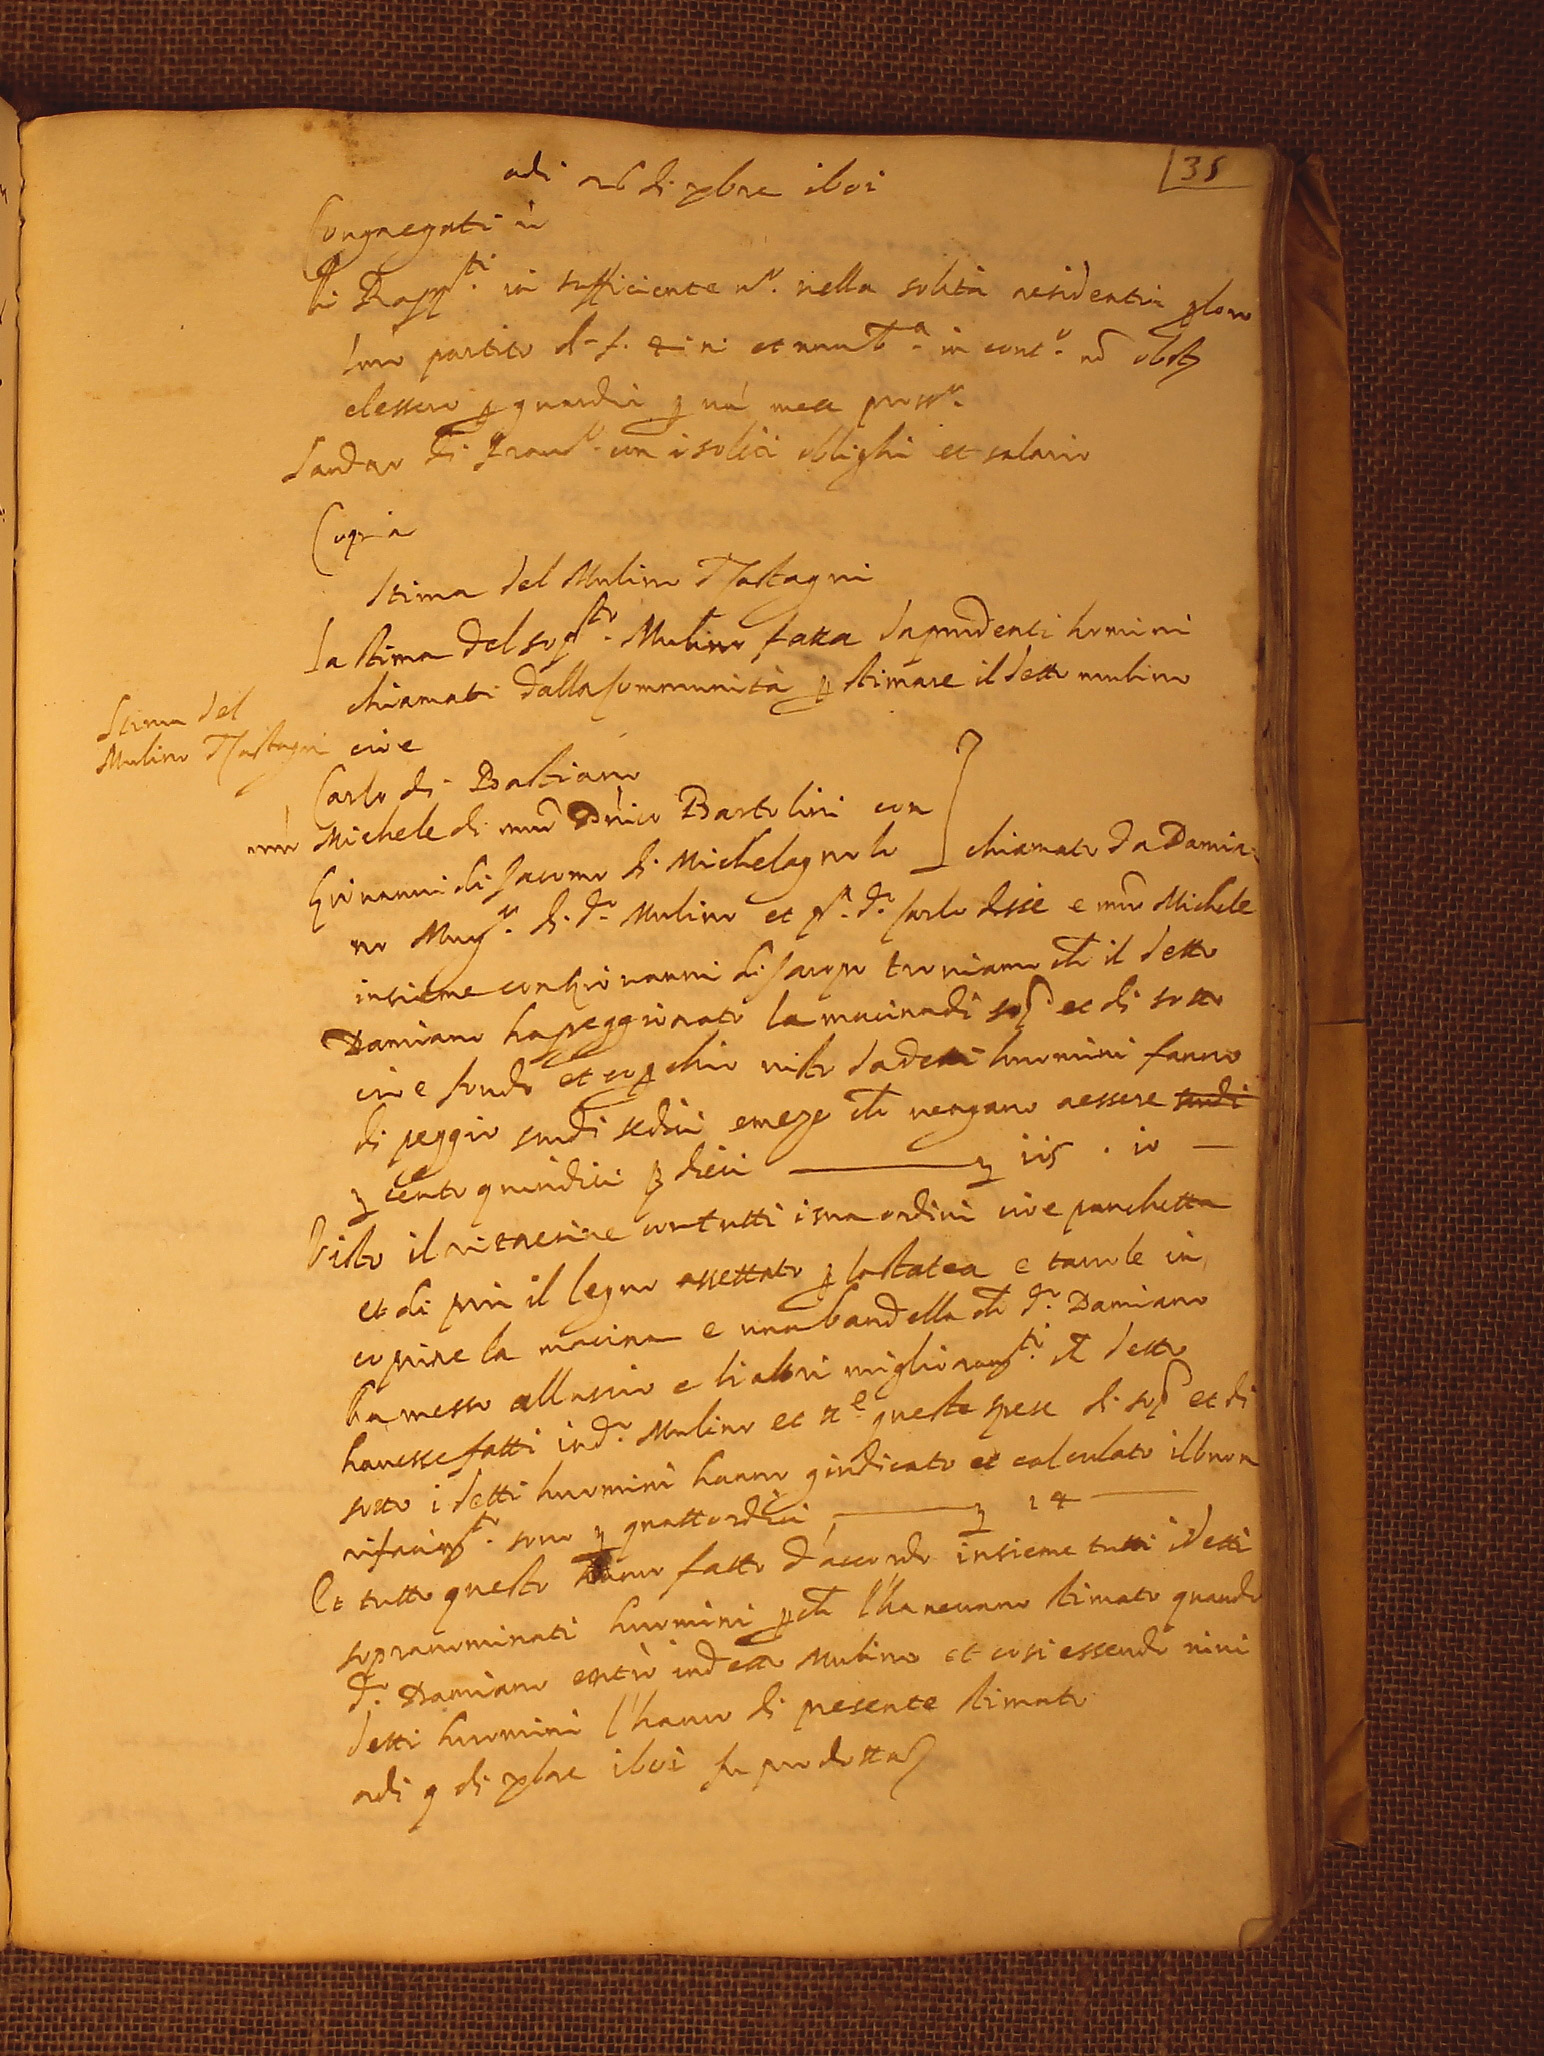 35
adi di xbre 1601
Congregati in
li Rapp.ti in sufficiente n.o nella solita residentia p loro
loro partito et in cont.o
elessero p guardia p un mese pross.o
Sandro di Franc.o con i soliti oblighi et salario
Copia
Stima del Mulino Nastagni
La stima del sop.to Mulino fatta da prudenti homini
chiamati dalla Communità p stimare il detto mulino
Stima del
Mulino Nastagni
cioe
Carlo di Bastiano
mro Michele di mro Dnico Bartolini con
Giovanni di Jacomo di Michelagnolo chiamato da Damia-
no Mug.o di d.o Mulino et d.o Carlo disse e mro Michele
insieme con Giovanni di Jacopo troviamo che il detto
Damiano ha peggiorato la macina di sop et di sotto
cioe fondo et copchio visto da detti huomini fanno
di peggio scudi sedici e mezo che vengano a essere scudi
cento quindici dieci 115 . 10 —
Visto il ritrecine con tutti i sua ordini cioe panchetta
et di piu il legno assettato p la statea e tavole in
coprire la macina e una bandella che d.o Damiano
ha messo all uscio e li altri miglioram.ti che detto
havesse fatti in d.o Mulino et queste spese di sop et di
sotto i detti huomini hanno giudicato et calculato il buon
rifacim.to sono quattordici 14 —
Et tutto questo hanno fatto d'accordo insieme tutti i detti
sopranominati huomini pche l'havevano stimato quando
d.o Damiano entrò in detto Mulino et cosi essendo vivi
detti huomini l'hanno di presente stimato
adi 9 di xbre 1601 fu prodotta